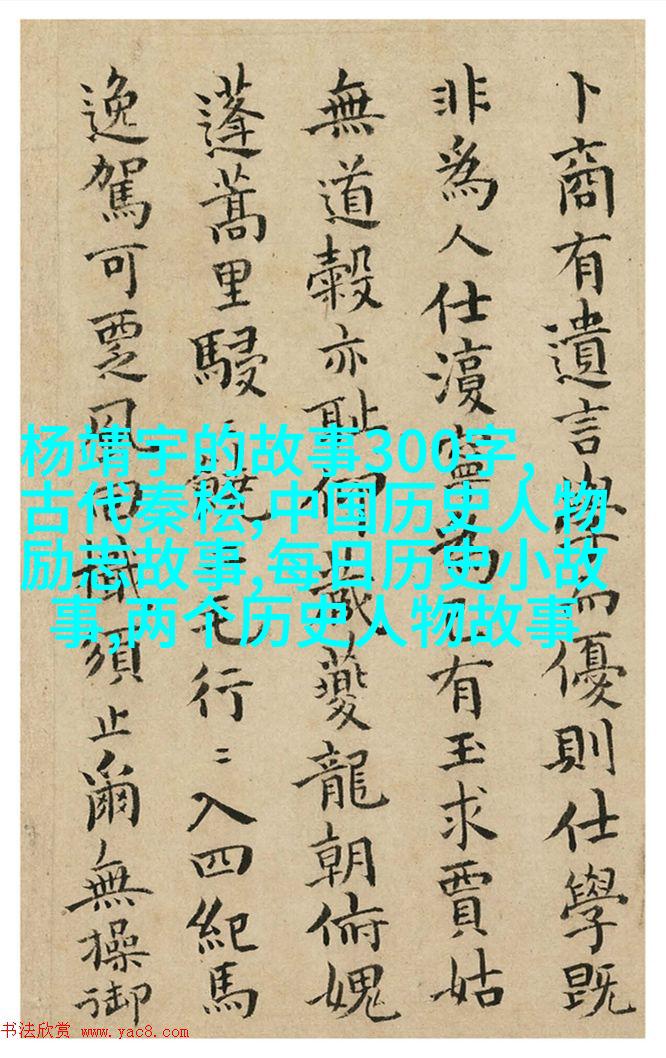 卜商有遺言學而優則仕學既
非為人仕 為 有玉求賈姑
無道穀亦恥 歲夔龍朝俯媿
蓬蒿里駸 行〻入四紀馬
逸駕可覂風 檝須止爾無操御
杨靖宇的故事300字,
古代秦桧,中国历史人物
励志故事,每日历史小故
事,两个历史人物故事
书法欣赏 www.yac8.com